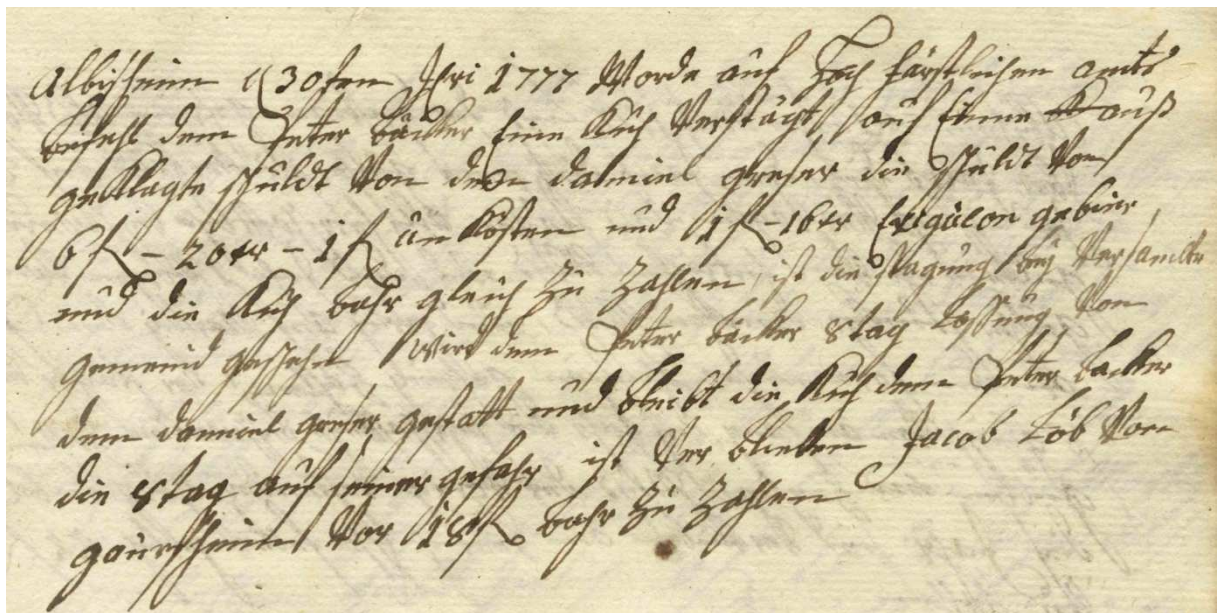 Albißheim d 30ten Xbri 1777 Worde auf Hoch fürstlichen amts
befehl dem Peter bäcker Eine Kuh Verstücht, auf Einne auß
geklagte schuldt Von dem daniel greser die schuldt Von
6 f – 20 xr – 1 f an Kösten und 1 f – 16 xr gebier
und die Kuh bahr gleich Zu Zahlen, ist die bey Versamelte
gemeind geschehn wird dem Peter bäcker 8 tag loßung Von
dem danniel greser gestatt und bleibt die Kuh dem Peter backer
die 8 tag auf seiner gefahr ist Ver blieben Jacob Löb Von
gauersheim Vor 18 f bahr Zu Zahlen